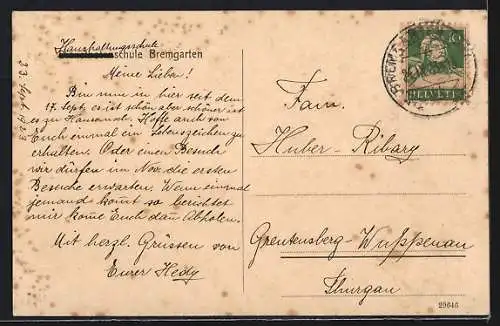 Haushaltungsschule
schule Bremgarten
Meine Lieben!
Bin nun in hier seit dem
17. Sept. es ist schön aber schöner ist
es zu Hause. Hoffe auch von
Euch einmal ein Lebenszeichen zu
erhalten. Oder einen Besuch
wir dürfen im Nov. die ersten
Besuche erwarten. Wenn einmal
jemand komt so berichtet
mir kome Euch dan Abholen.
Mit herzl. Grüssen von
Eurer Hedy
Fam.
Huber-Ribary
Greutensberg-Wuppenau
Thurgau
10
HELVETIA
BREMGARTEN
29646